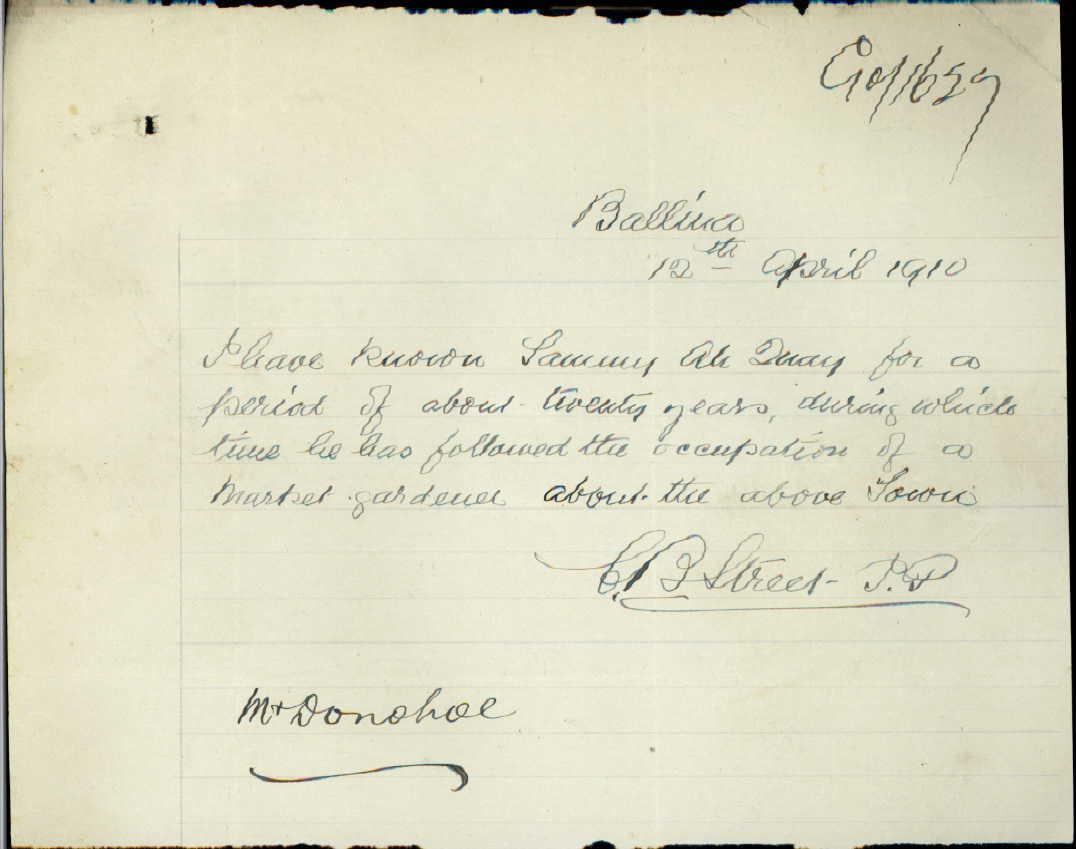 C10/1629
Ballina
12th April 1910
I have known Sammy Ah Quay for a
period of about twenty years, during which
time he has followed the occupation of a
Market gardener about the above Town
C.B Street J.P
Mr Donohoe